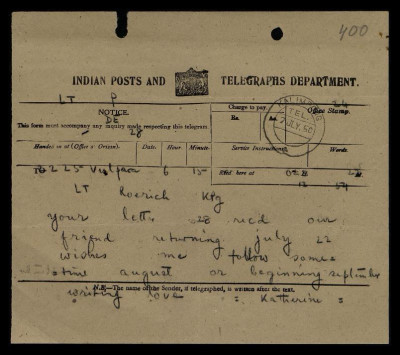 400
INDIAN POSTS AND TELEGRAPHS DEPARTMENT.
LT P
Charge to pay
Office Stamp.
NOTICE.
DE
Rs. As.
This form must accompany any inquiry made respecting this telegram.
28
TEL.
JLY.50
Handed in at (Office of Origin). Date. Hour. Minute. Service Instructions. Words.
6 15
Recd. here at
LT Roerich Kpg
your letter 28 recd our
friend returning july 22
wishes me follow some=
=time august or beginning september
N.B.—The name of the Sender, if telegraphed, is written after the text.
writing love = Katherine =